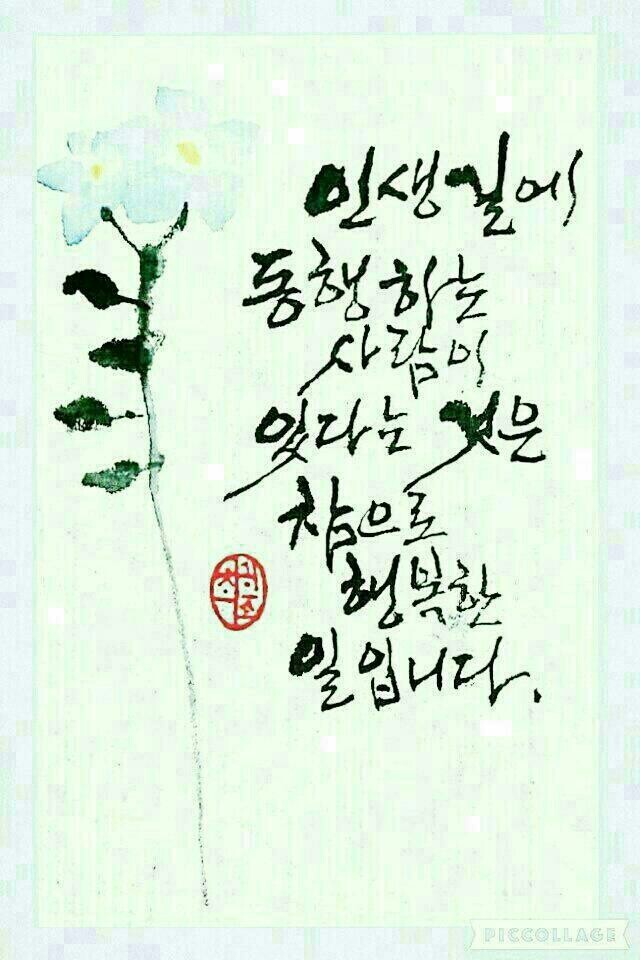 인생길에
동행하는
사람이
있다는 것은
참으로
행복한
일입니다.
PICCOLLAGE